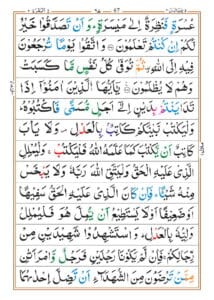 ٤٧
عُسْرَةٍ فَنَظِرَةٌ اِلٰى مَيْسَرَةٍ ؕ وَاَنْ تَصَدَّقُوْا خَيْرٌ
لَّكُمْ اِنْ كُنْتُمْ تَعْلَمُوْنَ وَاتَّقُوْا يَوْمًا تُرْجَعُوْنَ
فِيْهِ اِلَى اللّٰهِ ثُمَّ تُوَفّٰى كُلُّ نَفْسٍ مَّا كَسَبَتْ
وَهُمْ لَا يُظْلَمُوْنَ يٰۤاَيُّهَا الَّذِيْنَ اٰمَنُوْۤا اِذَا
تَدَايَنْتُمْ بِدَيْنٍ اِلٰۤى اَجَلٍ مُّسَمًّى فَاكْتُبُوْهُ ؕ
وَلْيَكْتُبْ بَّيْنَكُمْ كَاتِبٌۢ بِالْعَدْلِ وَلَا يَاْبَ
كَاتِبٌ اَنْ يَّكْتُبَ كَمَا عَلَّمَهُ اللّٰهُ فَلْيَكْتُبْ ۚ وَلْيُمْلِلِ
الَّذِيْ عَلَيْهِ الْحَقُّ وَلْيَتَّقِ اللّٰهَ رَبَّهٗ وَلَا يَبْخَسْ
مِنْهُ شَيْـًٔا ؕ فَاِنْ كَانَ الَّذِيْ عَلَيْهِ الْحَقُّ سَفِيْهًا
اَوْ ضَعِيْفًا اَوْ لَا يَسْتَطِيْعُ اَنْ يُّمِلَّ هُوَ فَلْيُمْلِلْ
وَلِيُّهٗ بِالْعَدْلِ ؕ وَاسْتَشْهِدُوْا شَهِيْدَيْنِ مِنْ
رِّجَالِكُمْ ۚ فَاِنْ لَّمْ يَكُوْنَا رَجُلَيْنِ فَرَجُلٌ وَّامْرَاَتٰنِ
مِمَّنْ تَرْضَوْنَ مِنَ الشُّهَدَآءِ اَنْ تَضِلَّ اِحْدٰىهُمَا